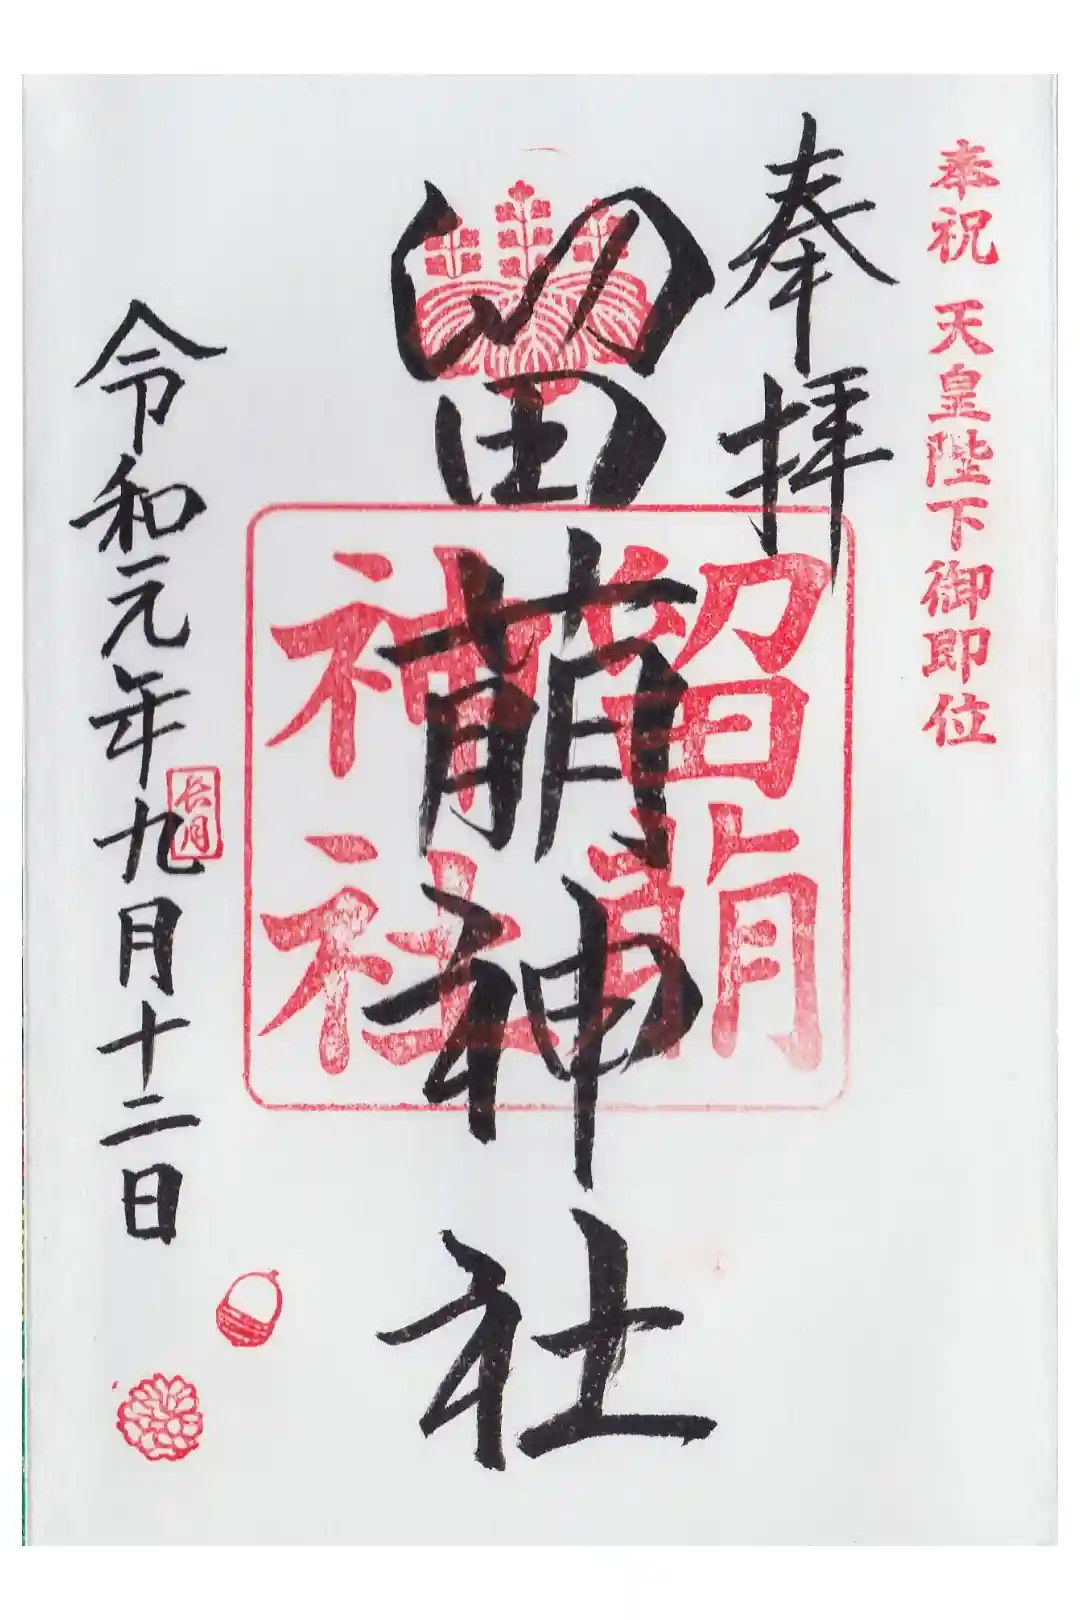 奉祝 天皇陛下御即位
奉拝
留萌神社
留萌
神社
令和元年九月十二日
長月